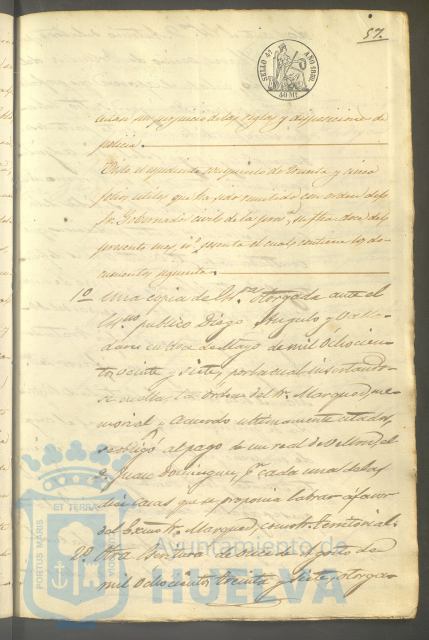 57.
SELLO 4º AÑO 1860.
40 Ms
sin perjuicio de las reglas y disposiciones de
policia.
Visto el espediente compuesto de treinta y cinco
fojas utiles que ha sido remitido con orden del
Sr. Gobernador civil de la prov.ª, su fha doce del
presente mes, nº sesenta el cual contiene los do-
cumentos siguientes.
1º Una copia de Es.ra otorgada ante el
Es.no publico Diego Angulo y
en de Mayo de mil ochocien-
tos veinte y siete, por la cual insertando-
se en ella la orden del Sr. Marques, me-
morial y acuerdo ultimamente citados,
se obligó al pago de un real de vellon, el
Juan Dominguez, pr. cada una de las
diez casas que se proponia labrar á favor
del Exmo Sr. Marques, como Sr. territorial.
2º Otra Escritura de once de Agosto de
mil ochocientos treinta y siete, otorga-
PORTUS MARIS ET TERRAE CUSTODIA
Ayuntamiento de
HUELVA